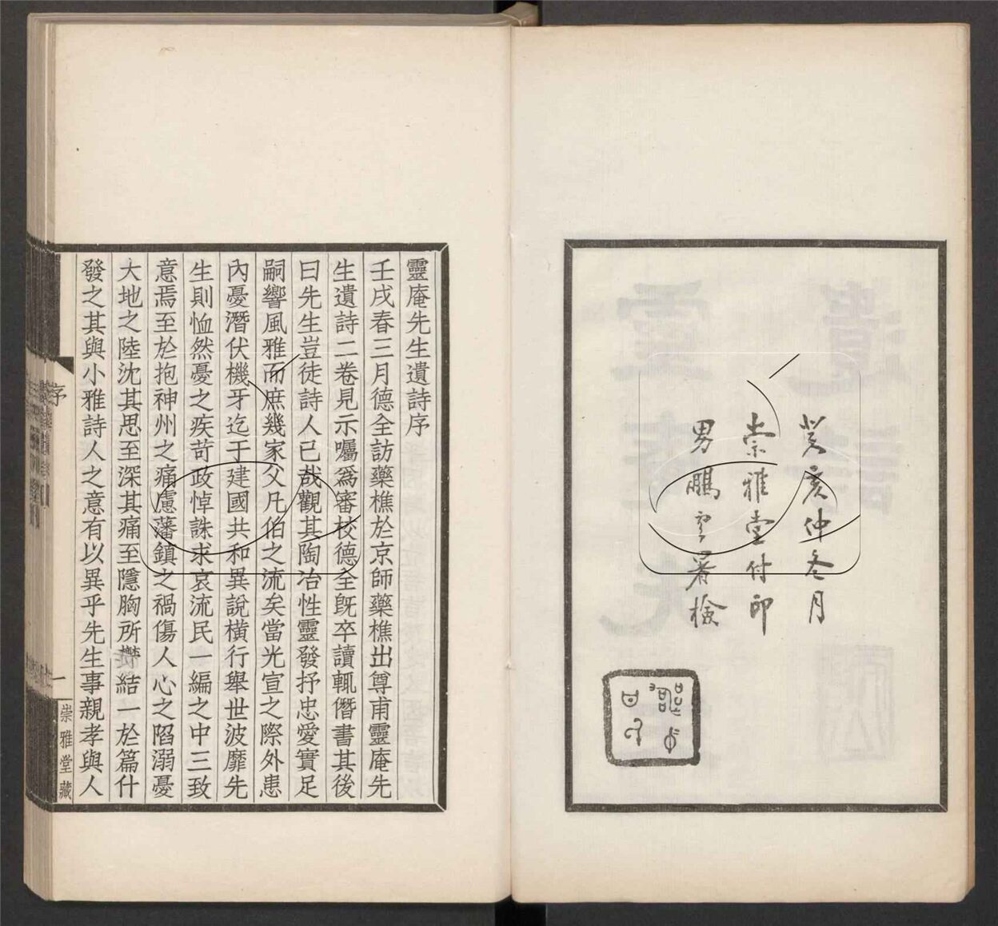 癸亥仲冬月
崇雅堂付印
男鵬雲署檢
靈庵先生遺詩序
壬戌春三月德全訪藥樵於京師藥樵出尊甫靈庵先
生遺詩二卷見示囑爲審校德全既卒讀輒僭書其後
曰先生豈徒詩人已哉觀其陶冶性靈發抒忠愛實足
嗣響風雅而庶幾家父凡伯之流矣當光宣之際外患
內憂潛伏機牙迄于建國共和異說橫行舉世波靡先
生則恤然憂之疾苛政悼誅求哀流民一編之中三致
意焉至於抱神州之痛慮藩鎮之禍傷人心之陷溺憂
大地之陸沈其思至深其痛至隱胸所鬱結一於篇什
發之其與小雅詩人之意有以異乎先生事親孝與人
序
一
崇雅堂藏